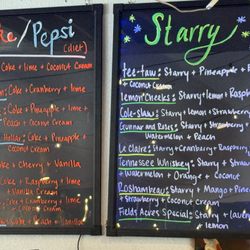 ke/Pepsi
(diet)
Coke + lime + Coconut Cream
Coke + Cranberry + lime
Coke + Pineapple + lime
Peach + Coconut Cream
Holler: Coke + Pineapple +
Coconut Cream
Coke + Cherry + Vanilla
Coke + Raspberry + lime
+ Vanilla Cream
Coke + Strawberry + lime
+ Coconut Cream
Coke + Peach + Vanilla
Starry
Tee-Taw: Starry + Pineapple +
+ Coconut Cream
Lemon Cheeks: Starry + lemon + Rasp
Cole-Slaw: Starry + lemon + Strawberry
Gunnar and Roses: Starry + Strawberry
Watermelon + Peach
Le Claire: Starry + Cranberry + Raspb
Tennessee Whiskey: Starry +
+ Watermelon + Orange + Coconut
Roshambeau: Starry + Mango + Pine
+ Strawberry + Coconut Cream
Fields Acres Special: Starry +
+ lemon